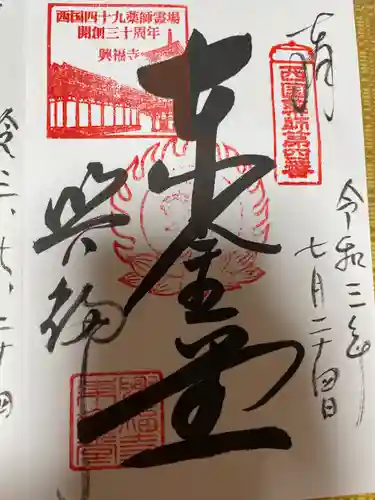 奉拝
西国薬師第四番
令和三年
七月二十四日
東金堂
西国四十九薬師霊場
開創三十周年
興福寺
興福寺